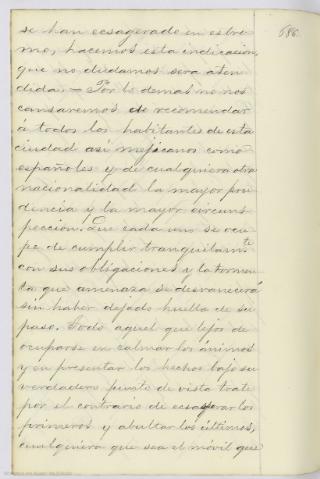 686.
se han ecsagerado en estre-
mo, hacemos esta indicacion,
que no dudamos sera aten-
dida. — Por lo demas no nos
cansaremos de recomendar
á todos los habitantes de esta
ciudad asi mejicanos como
españoles y de cualquiera otra
nacionalidad la mayor pru
dencia y la mayor circuns
peccion. Que cada uno se ocu
pe de cumplir tranquilamte
con sus obligaciones y la tormen
ta que amenaza se desvanecerá
sin haber dejado huella de su
paso. Todo aquel que lejos de
ocuparse en calmar los ánimos
y en presentar los hechos bajo su
verdadero punto de vista trate
por el contrario de ecsagerar los
primeros y abultar los últimos,
cualquiera que sea el móvil que